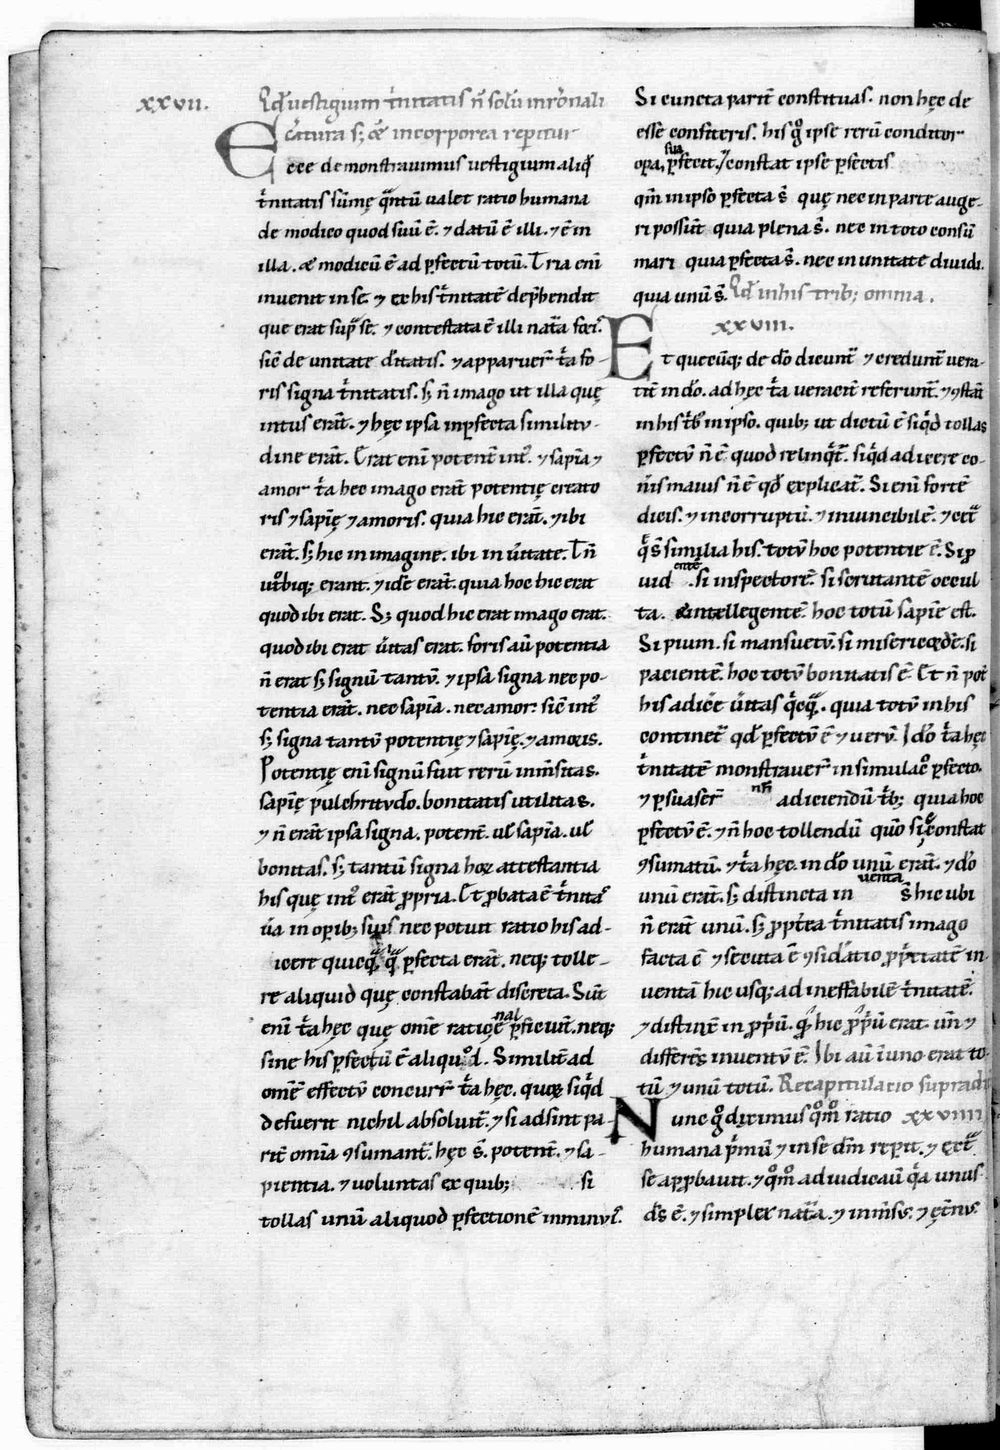 xxvii.
Qđ uestigium t̃nitatis ñ solũ in rõnali
c̃atura s; & incorporea reperitur
Ecce demonstrauimus uestigium aliq̃d
t̃nitatis sũmę q̃ntũ ualet ratio humana
de modico quod suũ ẽ. ⁊ datũ ẽ illi. ⁊ ẽ in
illa. & modicũ ẽ ad p̱fectũ totũ. Tria eni
inuenit in se. ⁊ ex his t̃nitatẽ dep̃hendit
que erat sup̃ se. ⁊ contestata ẽ illi nat̃a foris̃
sic̃ de unitate d̃itatis. ⁊ apparuer̃ t̃a fo-
ris signa t̃nitatis. s; ñ imago ut illa quę
intus erañt. ⁊ hęc ipsa inp̱fecta similitu-
dine erañt. Erat eni potent̃ int̃. ⁊ sapĩa ⁊
amor t̃a hec imago erañt potentię creato
ris ⁊ sapĩę ⁊ amoris. quia hic erañt. ⁊ ibi
erañt. s; hic in imagine. ibi in ũitate. T ñ
ut̊biq; erant. ⁊ idẽ erañt. quia hoc hic erat
quod ibi erat. S; quod hic erat imago erat.
quod ibi erat ũitas erat. foris aũ potentia
ñ erat s; signũ tantũ. ⁊ ipsa signa nec po-
tentia erañt. nec sapĩa. nec amor: sic̃ int̃
s; signa tantũ potentię ⁊ sapĩę. ⁊ amoris.
Potentię eni signũ fuit rerũ inm̃sitas.
sapĩę pulchritudo. bonitatis utilitas.
⁊ ñ erañt ipsa signa. potent̃. uł sapĩa. uł
bonitas. s; tantũ signa hoꝝ attestantia
his quę int̃ erañt p̱pria. Et p̱bata ẽ t̃nitas̃
ũa in op̱ib; suis nec potuit ratio his ad-
icere quicq̃. q̃ p̱fecta erañt. neq; tolle-
re aliquid quę constabañt discreta. Suñt
eni t̃a hęc quę om̃e rationale p̱ficiuñt. neq;
sine his p̱fectũ ẽ aliquod. Similit̃ ad
om̃ẽ effectũ concurr̃ t̃a hęc. quoꝝ siq̃d
defuerit nichil absoluit̃. ⁊ si adsint pa-
rit̃ om̃ia ꝯsumant̃. hęc s̃. potent̃. ⁊ sa-
pientia. ⁊ uoluntas ex quib; si
tollas unũ aliquod p̱fectionẽ inminuis̃.
Si cuncta parit̃ constituas. non hęc de
esse confiteris. his g̊ ipse rerũ conditor
op̱a sua p̱fecit. / constat ipse p̱fectis
qm̃ in ipso p̱fecta s̃ quę nec in parte auge-
ri possuñt quia plena s̃. nec in toto consũ
mari quia p̱fecta s̃. nec in unitate diuidi.
quia unũ s̃. Qđ in his trib; omnia.
xxviii.
Et quecũq; de d̃o dicunt̃ ⁊ credunt̃ uera-
cit̃ in d̃o. ad hęc t̃a ueracit̃ referunt̃. ⁊ ꝯstañt
in his t̃b; in ipso. quib; ut dictũ ẽ siq̃d tollas
p̱fectũ ñ ẽ quod relinq̃t̃. siq̃d adicere co-
ñis maius ñ ẽ qđ explicat̃. Si eni fortẽ
dicis. ⁊ incorruptũ. ⁊ inuincibilẽ. ⁊ cet̃a
q̃ s̃ similia his. totũ hoc potentie ẽ. Si p̱
uidentẽ. si inspectorẽ. si scrutantẽ occul
ta. & intellegentẽ. hoc totũ sapĩe est.
Si pium. si mansuetũ. si misericordẽ. si
pacientẽ. hoc totũ bonitatis ẽ. Et ñ pot̃
his adicẽ ũitas q̃cq̃. quia totũ in his
continet̃ qđ p̱fectũ ẽ ⁊ uerũ. Id̃o t̃a hęc
t̃nitatẽ monstrauer̃ in simulac̊ p̱fecto.
⁊ p̱suaser̃ nñ adiciendũ t̃b; quia hoc
p̱fectũ ẽ. ⁊ ñ hoc tollendũ quõ sic̃ constat
ꝯsumatũ. ⁊ t̃a hęc. in d̃o unũ erañt. ⁊ d̃o
unũ erañt. s; distincta inuenta s̃ hic ubi
ñ erañt unũ. s; p̱pt̃ea t̃nitatis imago
facta ẽ ⁊ secuta ẽ ꝯsid̃atio p̱p̃ietatẽ in-
uentã hic usq; ad ineffabilẽ t̃nitatẽ.
⁊ distinx̃ in p̱p̃iũ. q̃ hic p̱p̃iũ erat. uñ ⁊
differẽs inuentũ ẽ. Ibi aũ ĩ uno erat to-
tũ ⁊ unũ totũ. Recapitulatio supradi
Nunc g̊ dicimus q̊m̊ ratio xxviiii
humana p̃mũ ⁊ in se dm̃ rep̱it. ⁊ cet̃a
se app̱bauit. ⁊ q̊m̊ adiudicauit q̃a unus
d̃s ẽ. ⁊ simplex nat̃a. ⁊ inm̃sus. ⁊ ęt̃nus.